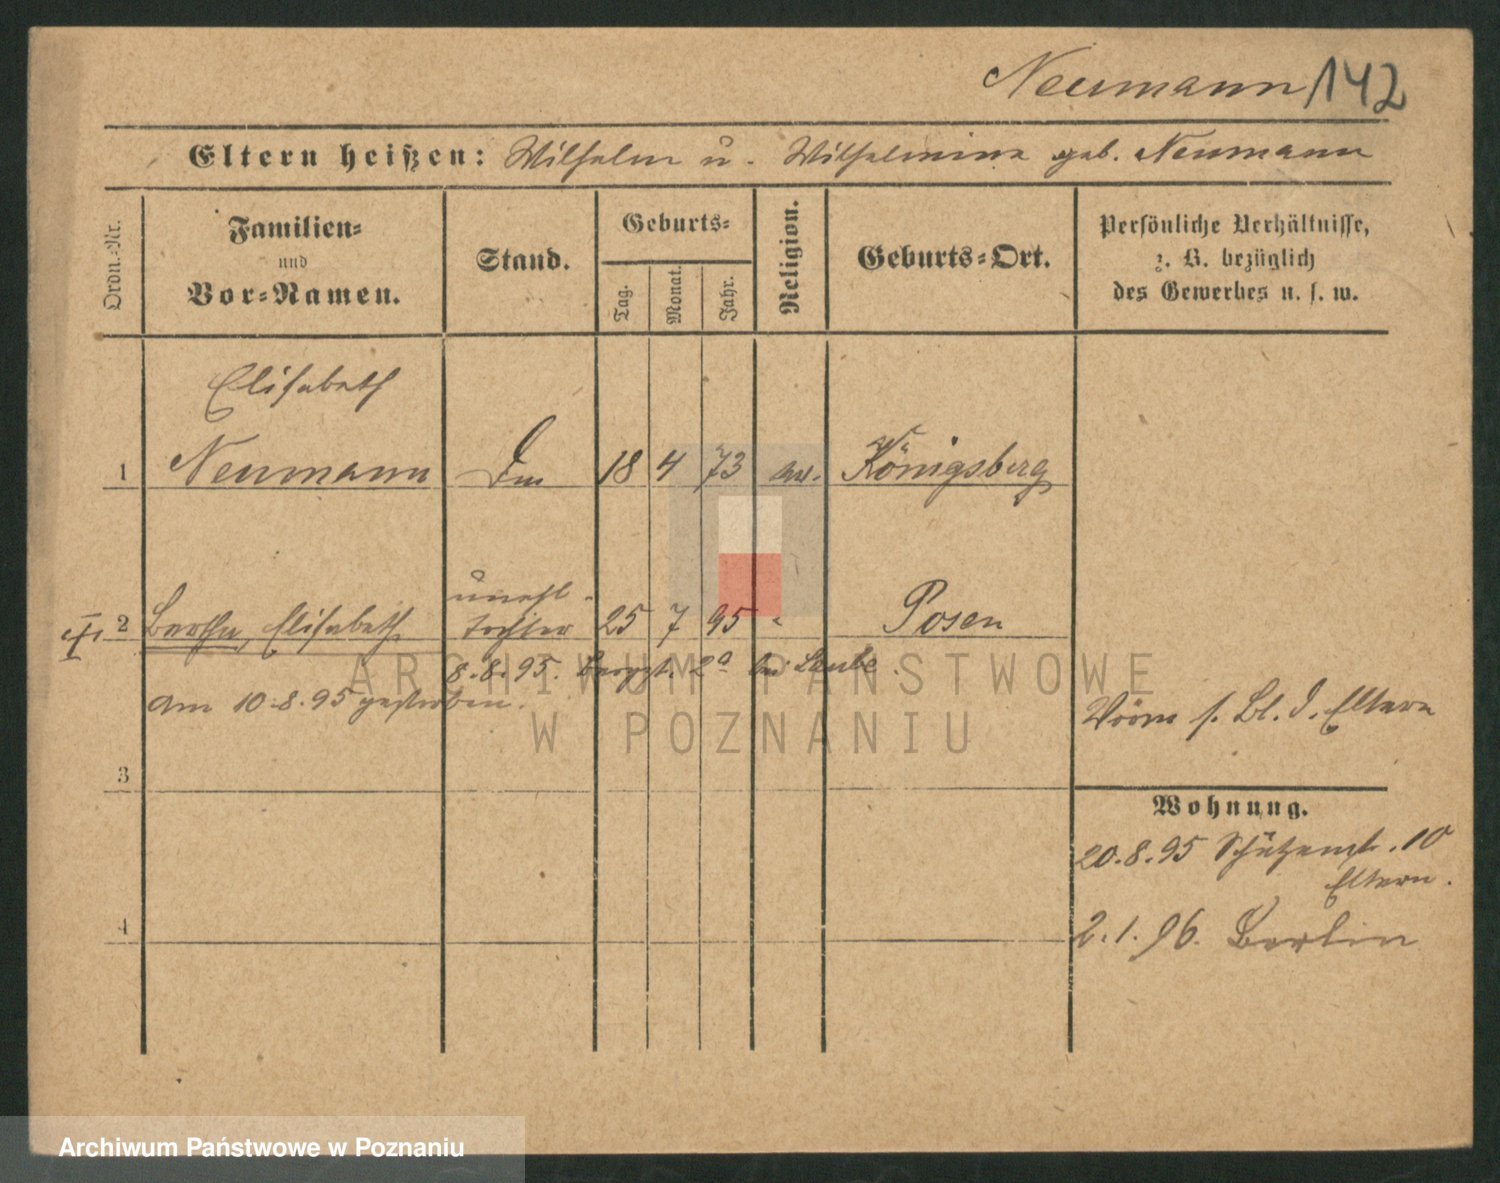 Neumann 142
Eltern heißen: Wilhelm u. Wilhelmine geb. Neumann
Ordn.-Nr.
Familien-
und
Vor-Namen.
Stand.
Geburts-
Tag.
Monat.
Jahr.
Religion.
Geburts-Ort.
Persönliche Verhältnisse,
z. B. bezüglich
des Gewerbes u. s. w.
Elisabeth
1 Neumann 18 4 73 ev. Königsberg
unehl.
2 Bertha, Elisabeth Tochter 25 7 95 " Posen
8.8.95. Bergstr. 2a bei Laube.
am 10.8.95 gestorben.
s. Bl. d. Eltern
3
Wohnung.
20.8.95 Schützenstr. 10
Eltern.
4
2.1.96. Berlin
ARCHIWUM PAŃSTWOWE
W POZNANIU
Archiwum Państwowe w Poznaniu